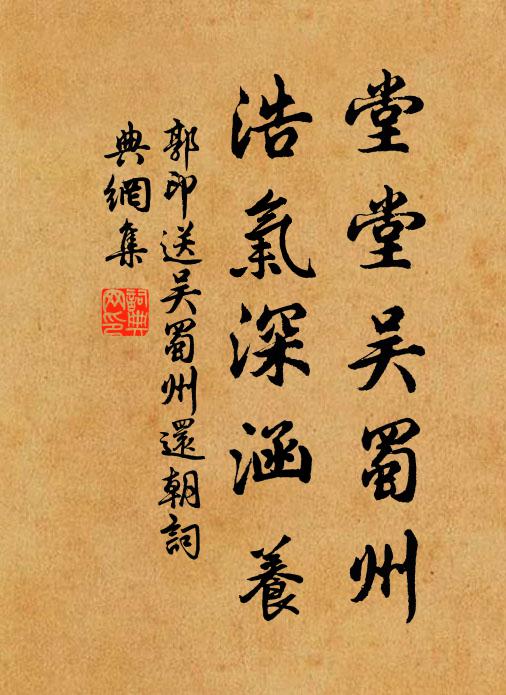 堂堂吴蜀州
浩氣深涵養
郭印送吴蜀州還朝詞
典網集
詞典
网印